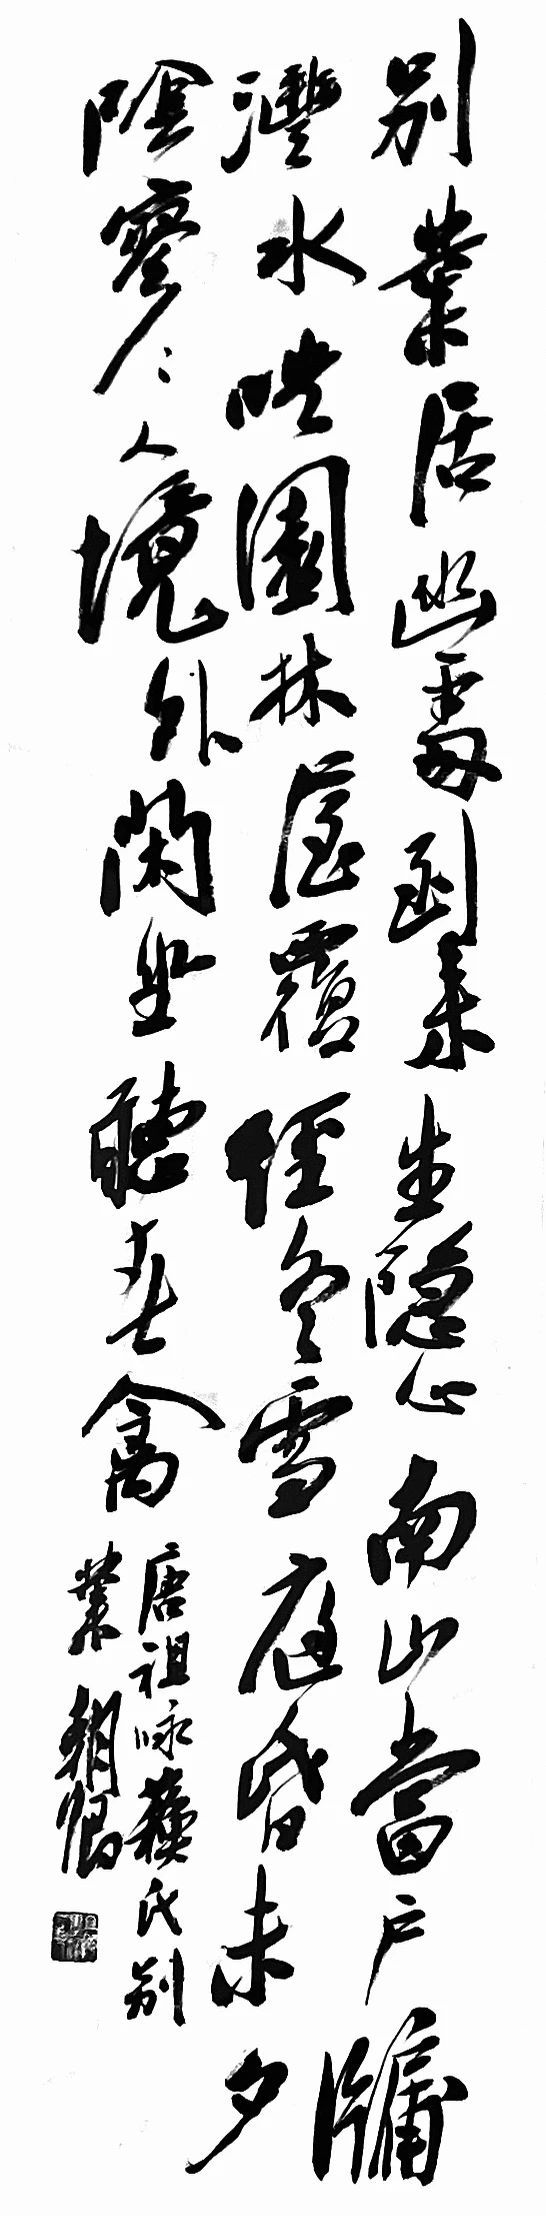 别業居幽處到来生隱心南山當户牖
灃水映園林屋覆經冬雪庭昏未夕
陰寥々人境外閑坐聽春禽
唐祖咏蘇氏别
業